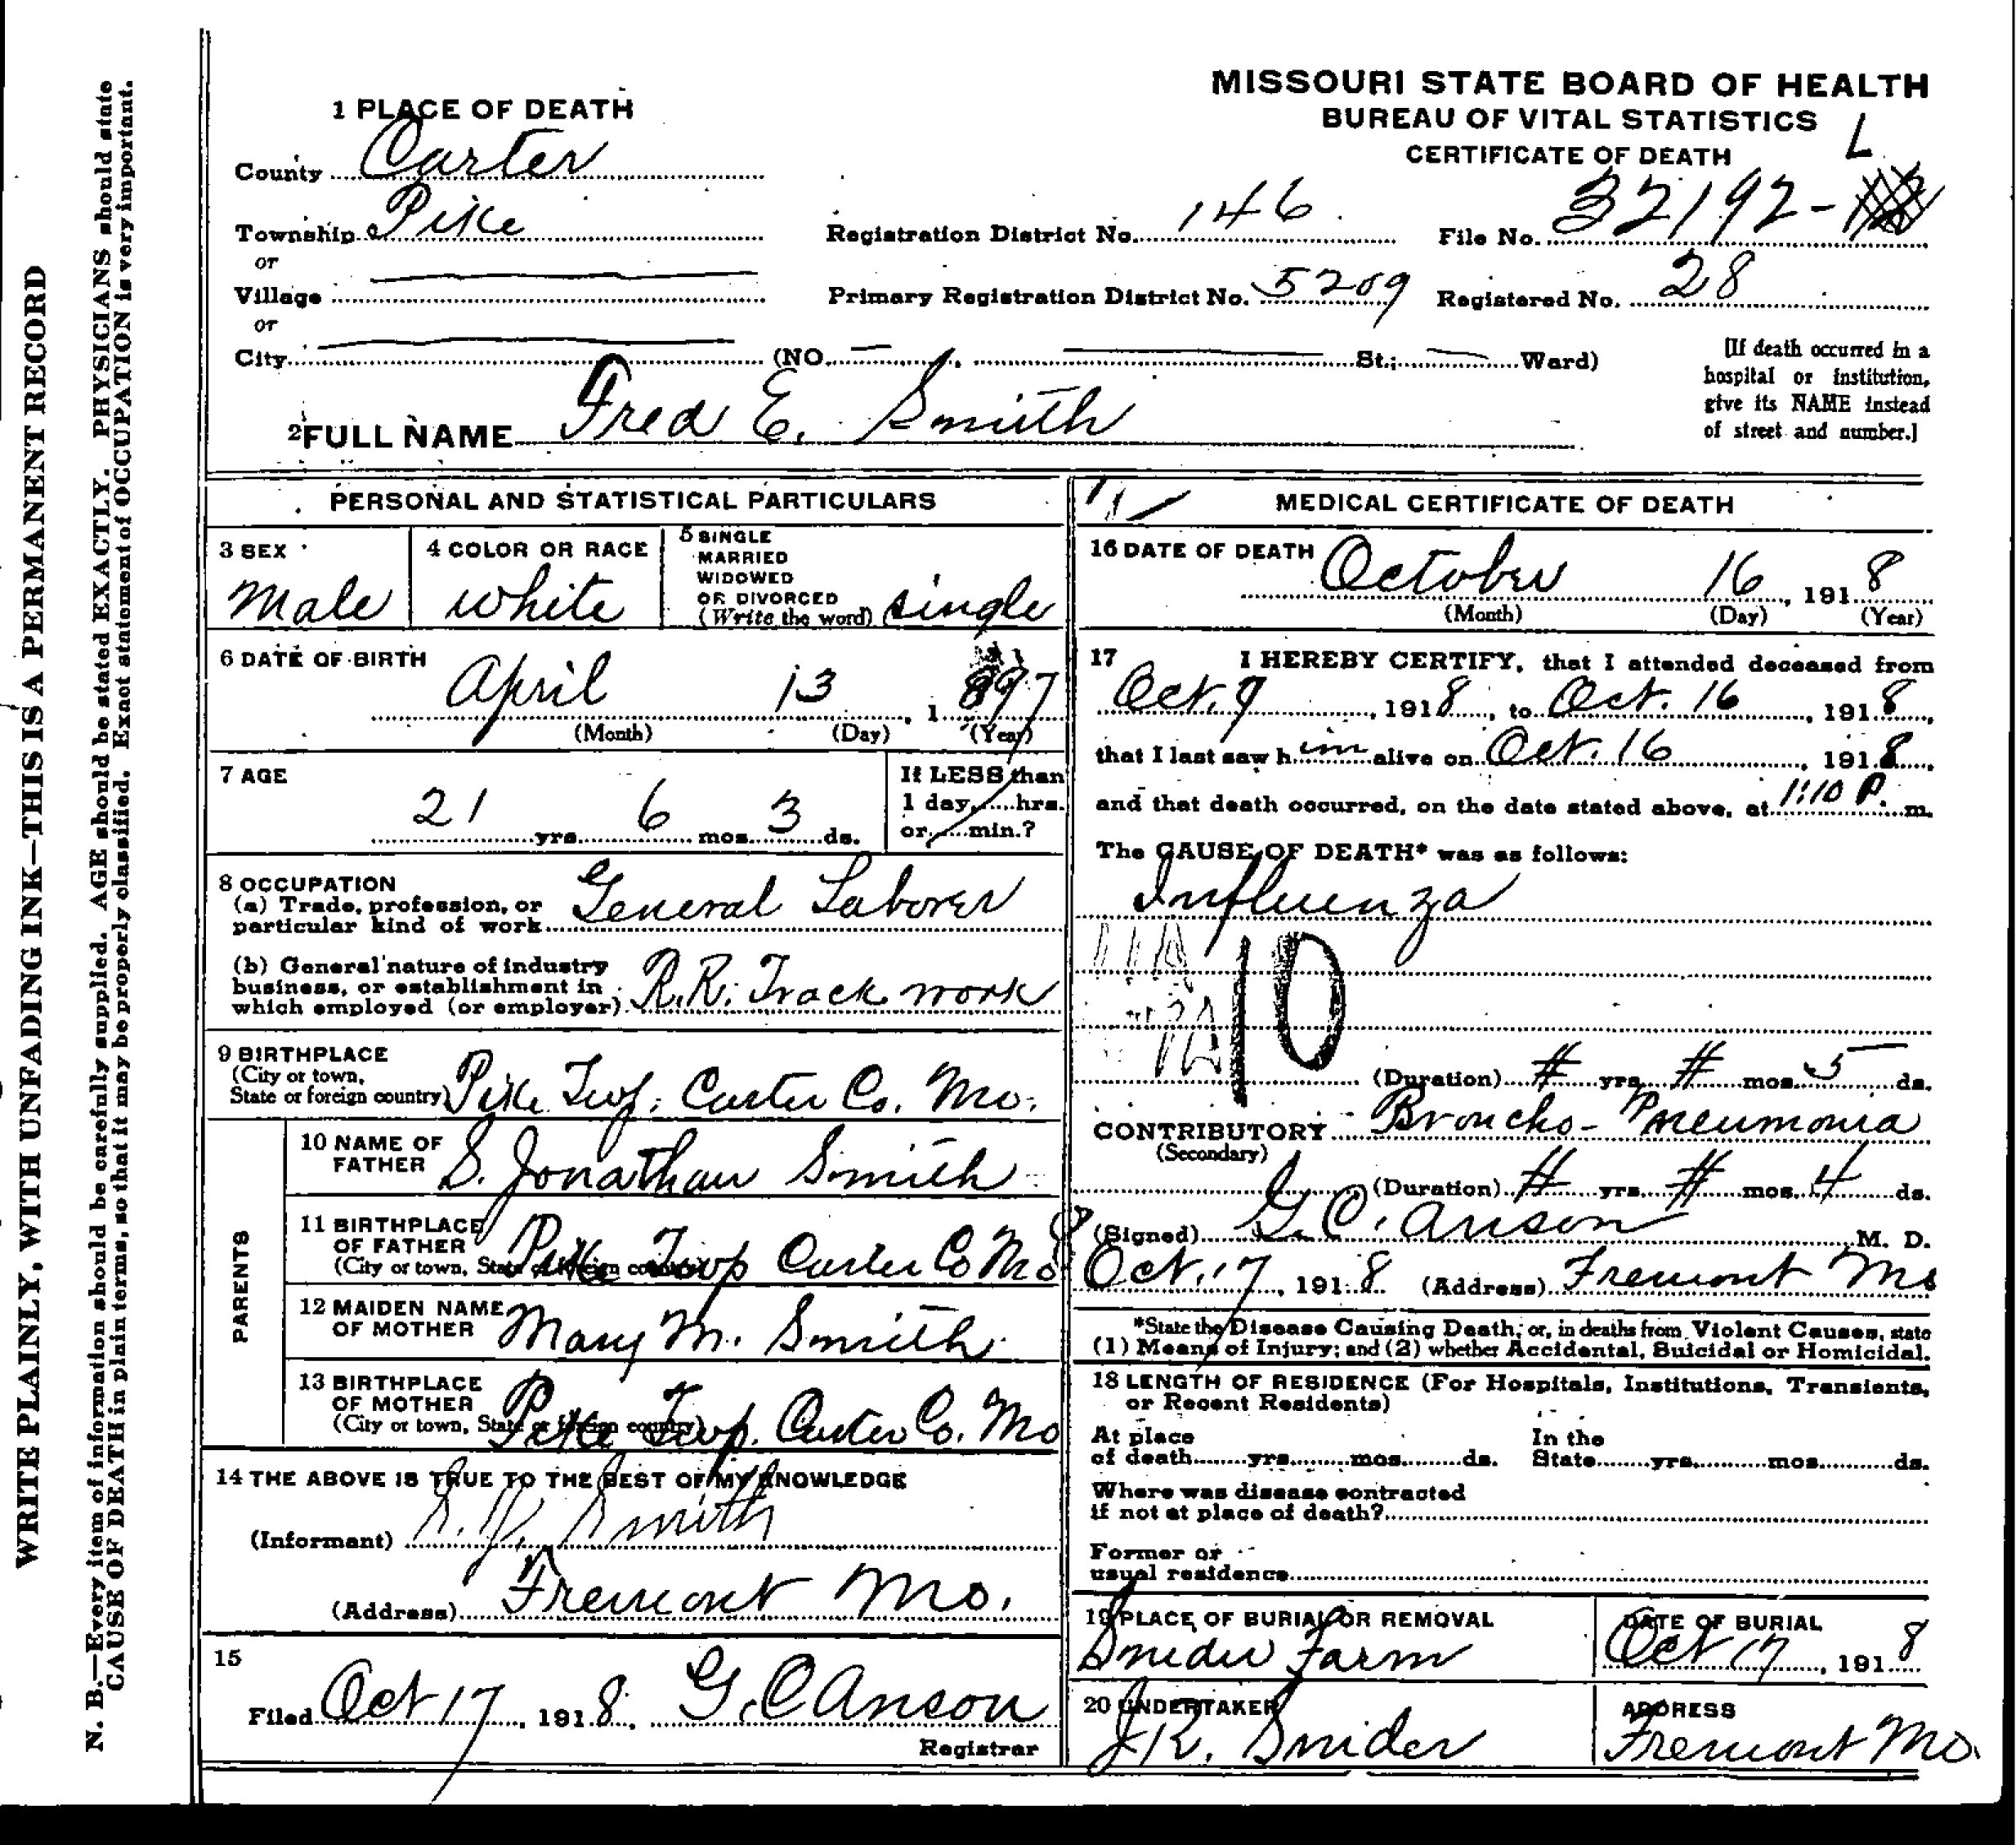 WRITE PLAINLY, WITH UNFADING INK—THIS IS A PERMANENT RECORD
N. B.—Every item of information should be carefully supplied. AGE should be stated EXACTLY. PHYSICIANS should state
CAUSE OF DEATH in plain terms, so that it may be properly classified. Exact statement of OCCUPATION is very important.
MISSOURI STATE BOARD OF HEALTH
BUREAU OF VITAL STATISTICS
CERTIFICATE OF DEATH
L
1 PLACE OF DEATH
County Carter
Township Pike
or
Village
or
City (NO. St.; Ward)
Registration District No. 146
File No. 32192-
Primary Registration District No. 5209
Registered No. 28
[If death occurred in a
hospital or institution,
give its NAME instead
of street and number.]
2 FULL NAME Fred E. Smith
PERSONAL AND STATISTICAL PARTICULARS
3 SEX
Male
4 COLOR OR RACE
white
5 SINGLE
MARRIED
WIDOWED
OR DIVORCED
(Write the word) single
6 DATE OF BIRTH
April 13, 1897
(Month) (Day) (Year)
7 AGE
21 yrs. 6 mos. 3 ds.
If LESS than
1 day, hrs.
or min.?
8 OCCUPATION
(a) Trade, profession, or
particular kind of work General Laborer
(b) General nature of industry
business, or establishment in
which employed (or employer) R.R. Track work
9 BIRTHPLACE
(City or town,
State or foreign country) Pike Twp. Carter Co. Mo.
PARENTS
10 NAME OF
FATHER S. Jonathan Smith
11 BIRTHPLACE
OF FATHER
(City or town, State or foreign country) Pike Twp Carter Co Mo
12 MAIDEN NAME
OF MOTHER Mary M. Smith
13 BIRTHPLACE
OF MOTHER
(City or town, State or foreign country) Pike Twp. Carter Co. Mo
14 THE ABOVE IS TRUE TO THE BEST OF MY KNOWLEDGE
(Informant) S. J. Smith
(Address) Fremont Mo.
15
Filed Oct 17, 1918. G. C Anson
Registrar
MEDICAL CERTIFICATE OF DEATH
16 DATE OF DEATH October 16, 1918
(Month) (Day) (Year)
17 I HEREBY CERTIFY, that I attended deceased from
Oct. 9, 1918, to Oct. 16, 1918,
that I last saw him alive on Oct. 16, 1918,
and that death occurred, on the date stated above, at 1:10 P. m.
The CAUSE OF DEATH* was as follows:
Influenza
10
(Duration) # yrs. # mos. 5 ds.
CONTRIBUTORY Broncho-Pneumonia
(Secondary)
(Duration) # yrs. # mos. 4 ds.
(Signed) G. C. Anson M. D.
Oct. 17, 1918 (Address) Fremont Mo
*State the Disease Causing Death, or, in deaths from Violent Causes, state
(1) Means of Injury; and (2) whether Accidental, Suicidal or Homicidal.
18 LENGTH OF RESIDENCE (For Hospitals, Institutions, Transients,
or Recent Residents)
At place
of death yrs. mos. ds.
In the
State yrs. mos. ds.
Where was disease contracted
if not at place of death?
Former or
usual residence
19 PLACE OF BURIAL OR REMOVAL
Snider Farm
DATE OF BURIAL
Oct 17, 1918
20 UNDERTAKER
J.R. Snider
ADDRESS
Fremont Mo.